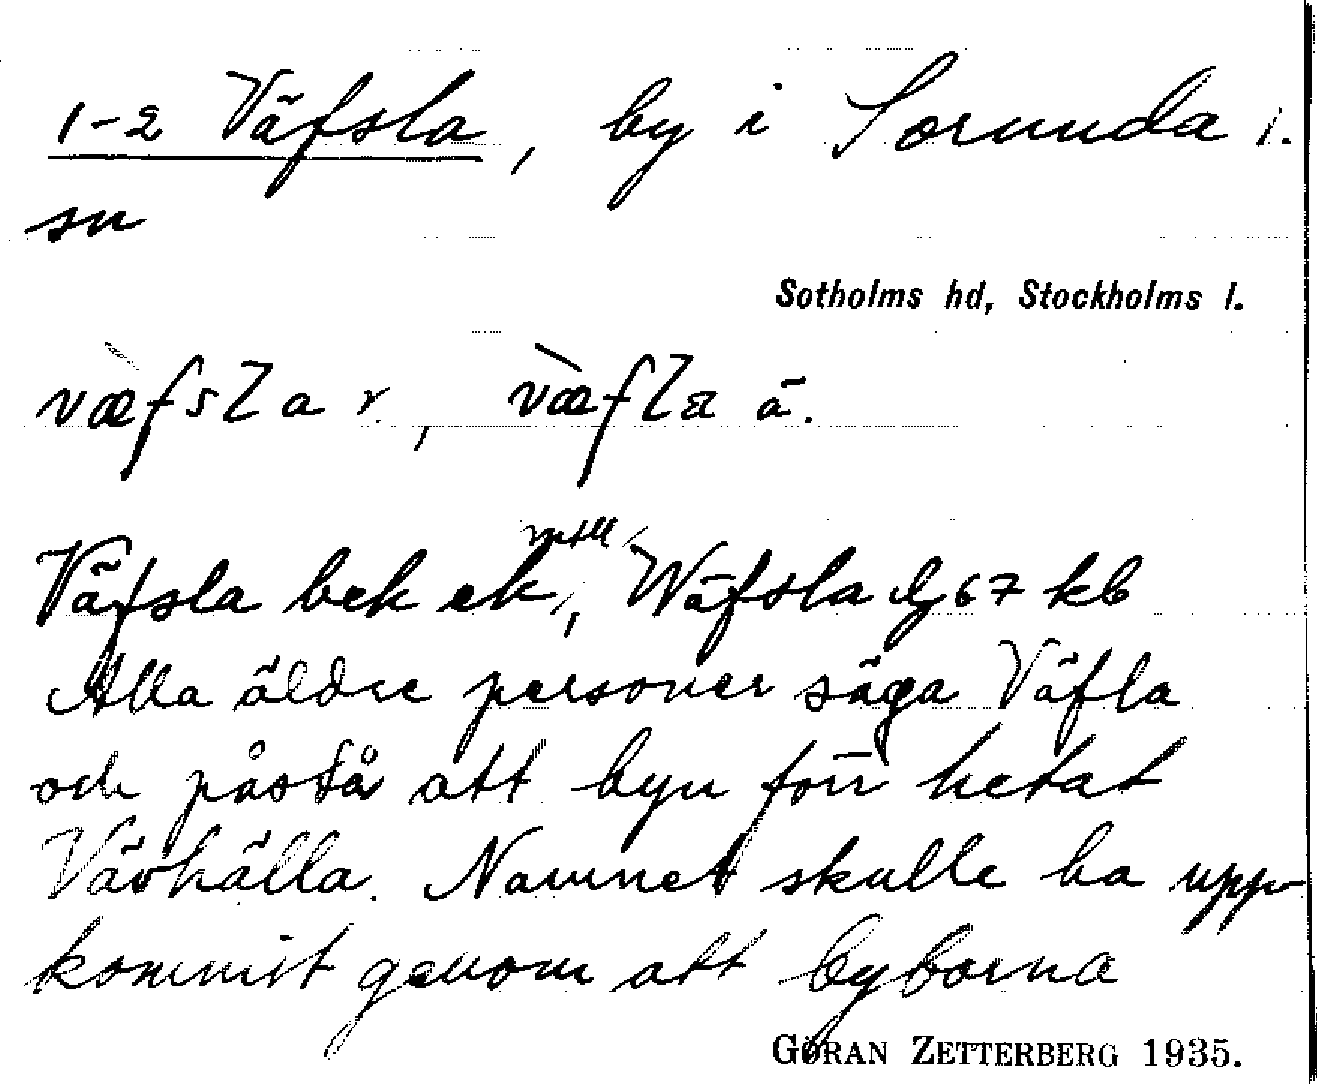 1-2 Väfsla, by i Sorunda 1.
sn
Sotholms hd, Stockholms l.
væ̀fsla r., væ̀fla ä.
mtll
Väfsla bek ek, Wäfsla Gj 67 kb
Alla äldre personer säga Väfla
och påstå att byn förr hetat
Vävhälla. Namnet skulle ha upp-
kommit genom att byborna
GÖRAN ZETTERBERG 1935.